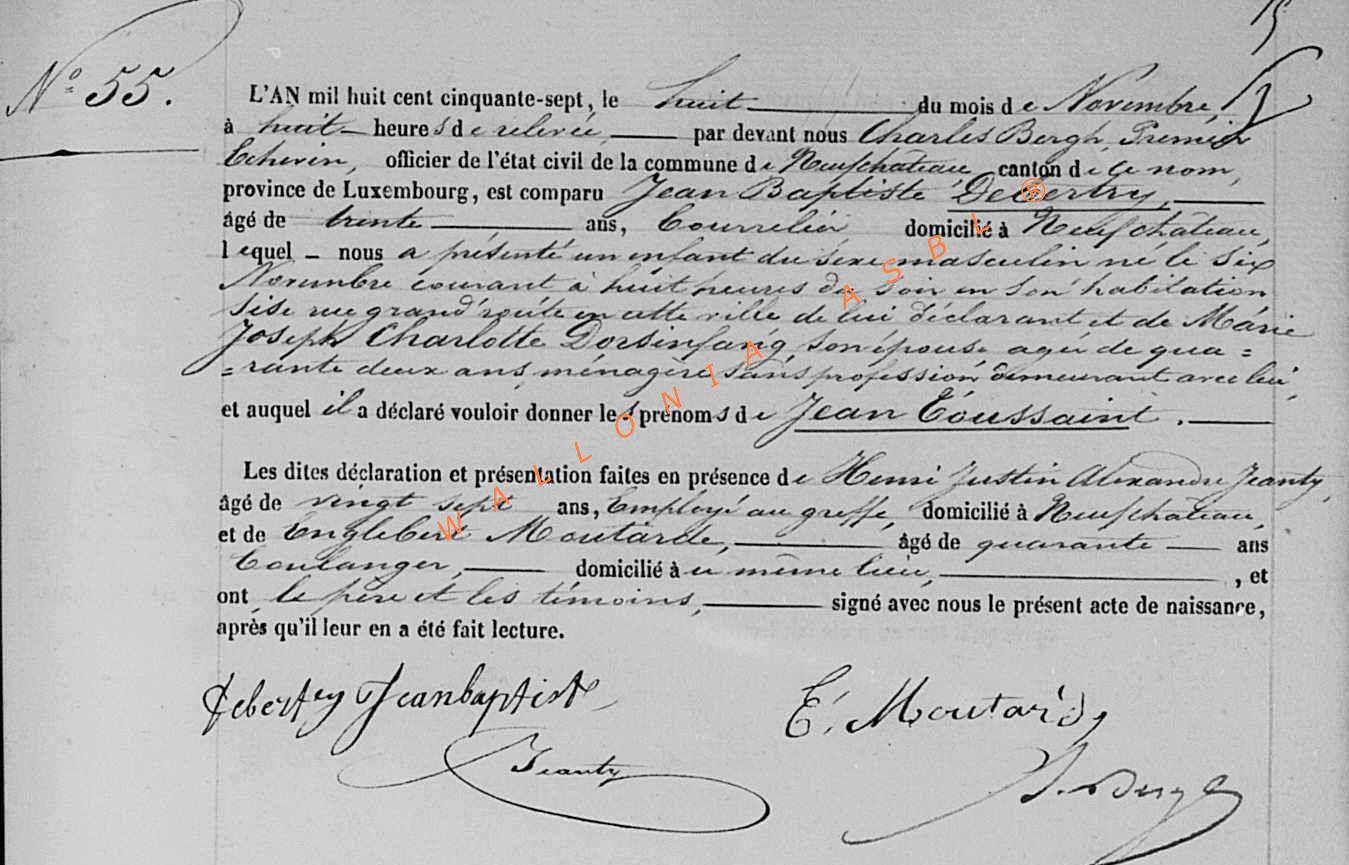 N° 55.
L'AN mil huit cent cinquante-sept, le huit du mois de Novembre,
à huit heures de relevée, par devant nous Charles Bergh, Premier
Echevin, officier de l'état civil de la commune de Neufchâteau, canton de ce nom,
province de Luxembourg, est comparu Jean Baptiste Debertry,
âgé de trente ans, Bourrelier domicilié à Neufchâteau,
lequel nous a présenté un enfant du sexe masculin né le six
Novembre courant à huit heures du soir en son habitation
sise rue grand'route en cette ville de lui déclarant et de Marie
Joseph Charlotte Dorsinfang, son épouse agée de qua=
=rante deux ans, ménagère sans profession demeurant avec lui,
et auquel il a déclaré vouloir donner les prénoms de Jean Toussaint.
Les dites déclaration et présentation faites en présence de Henri Justin Alexandre Jeanty,
âgé de vingt sept ans, Employé au greffe, domicilié à Neufchâteau,
et de Englebert Moutarde, âgé de quarante ans
Boulanger, domicilié à ce même lieu, , et
ont le père et les témoins, signé avec nous le présent acte de naissance,
après qu'il leur en a été fait lecture.
debertry Jeanbaptiste
E. Moutarde
Jeanty
WALLONIA ASBL ®